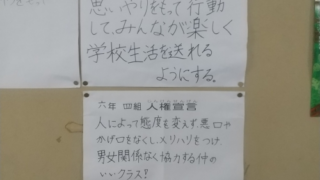 思いやりをもって行動
して、みんなが楽しく
学校生活を送れる
ようにする。
六年 四組 人権宣言
人によって態度を変えず、悪口や
かげ口をなくし、メリハリをつけ、
男女関係なく協力する仲の
いいクラス!!